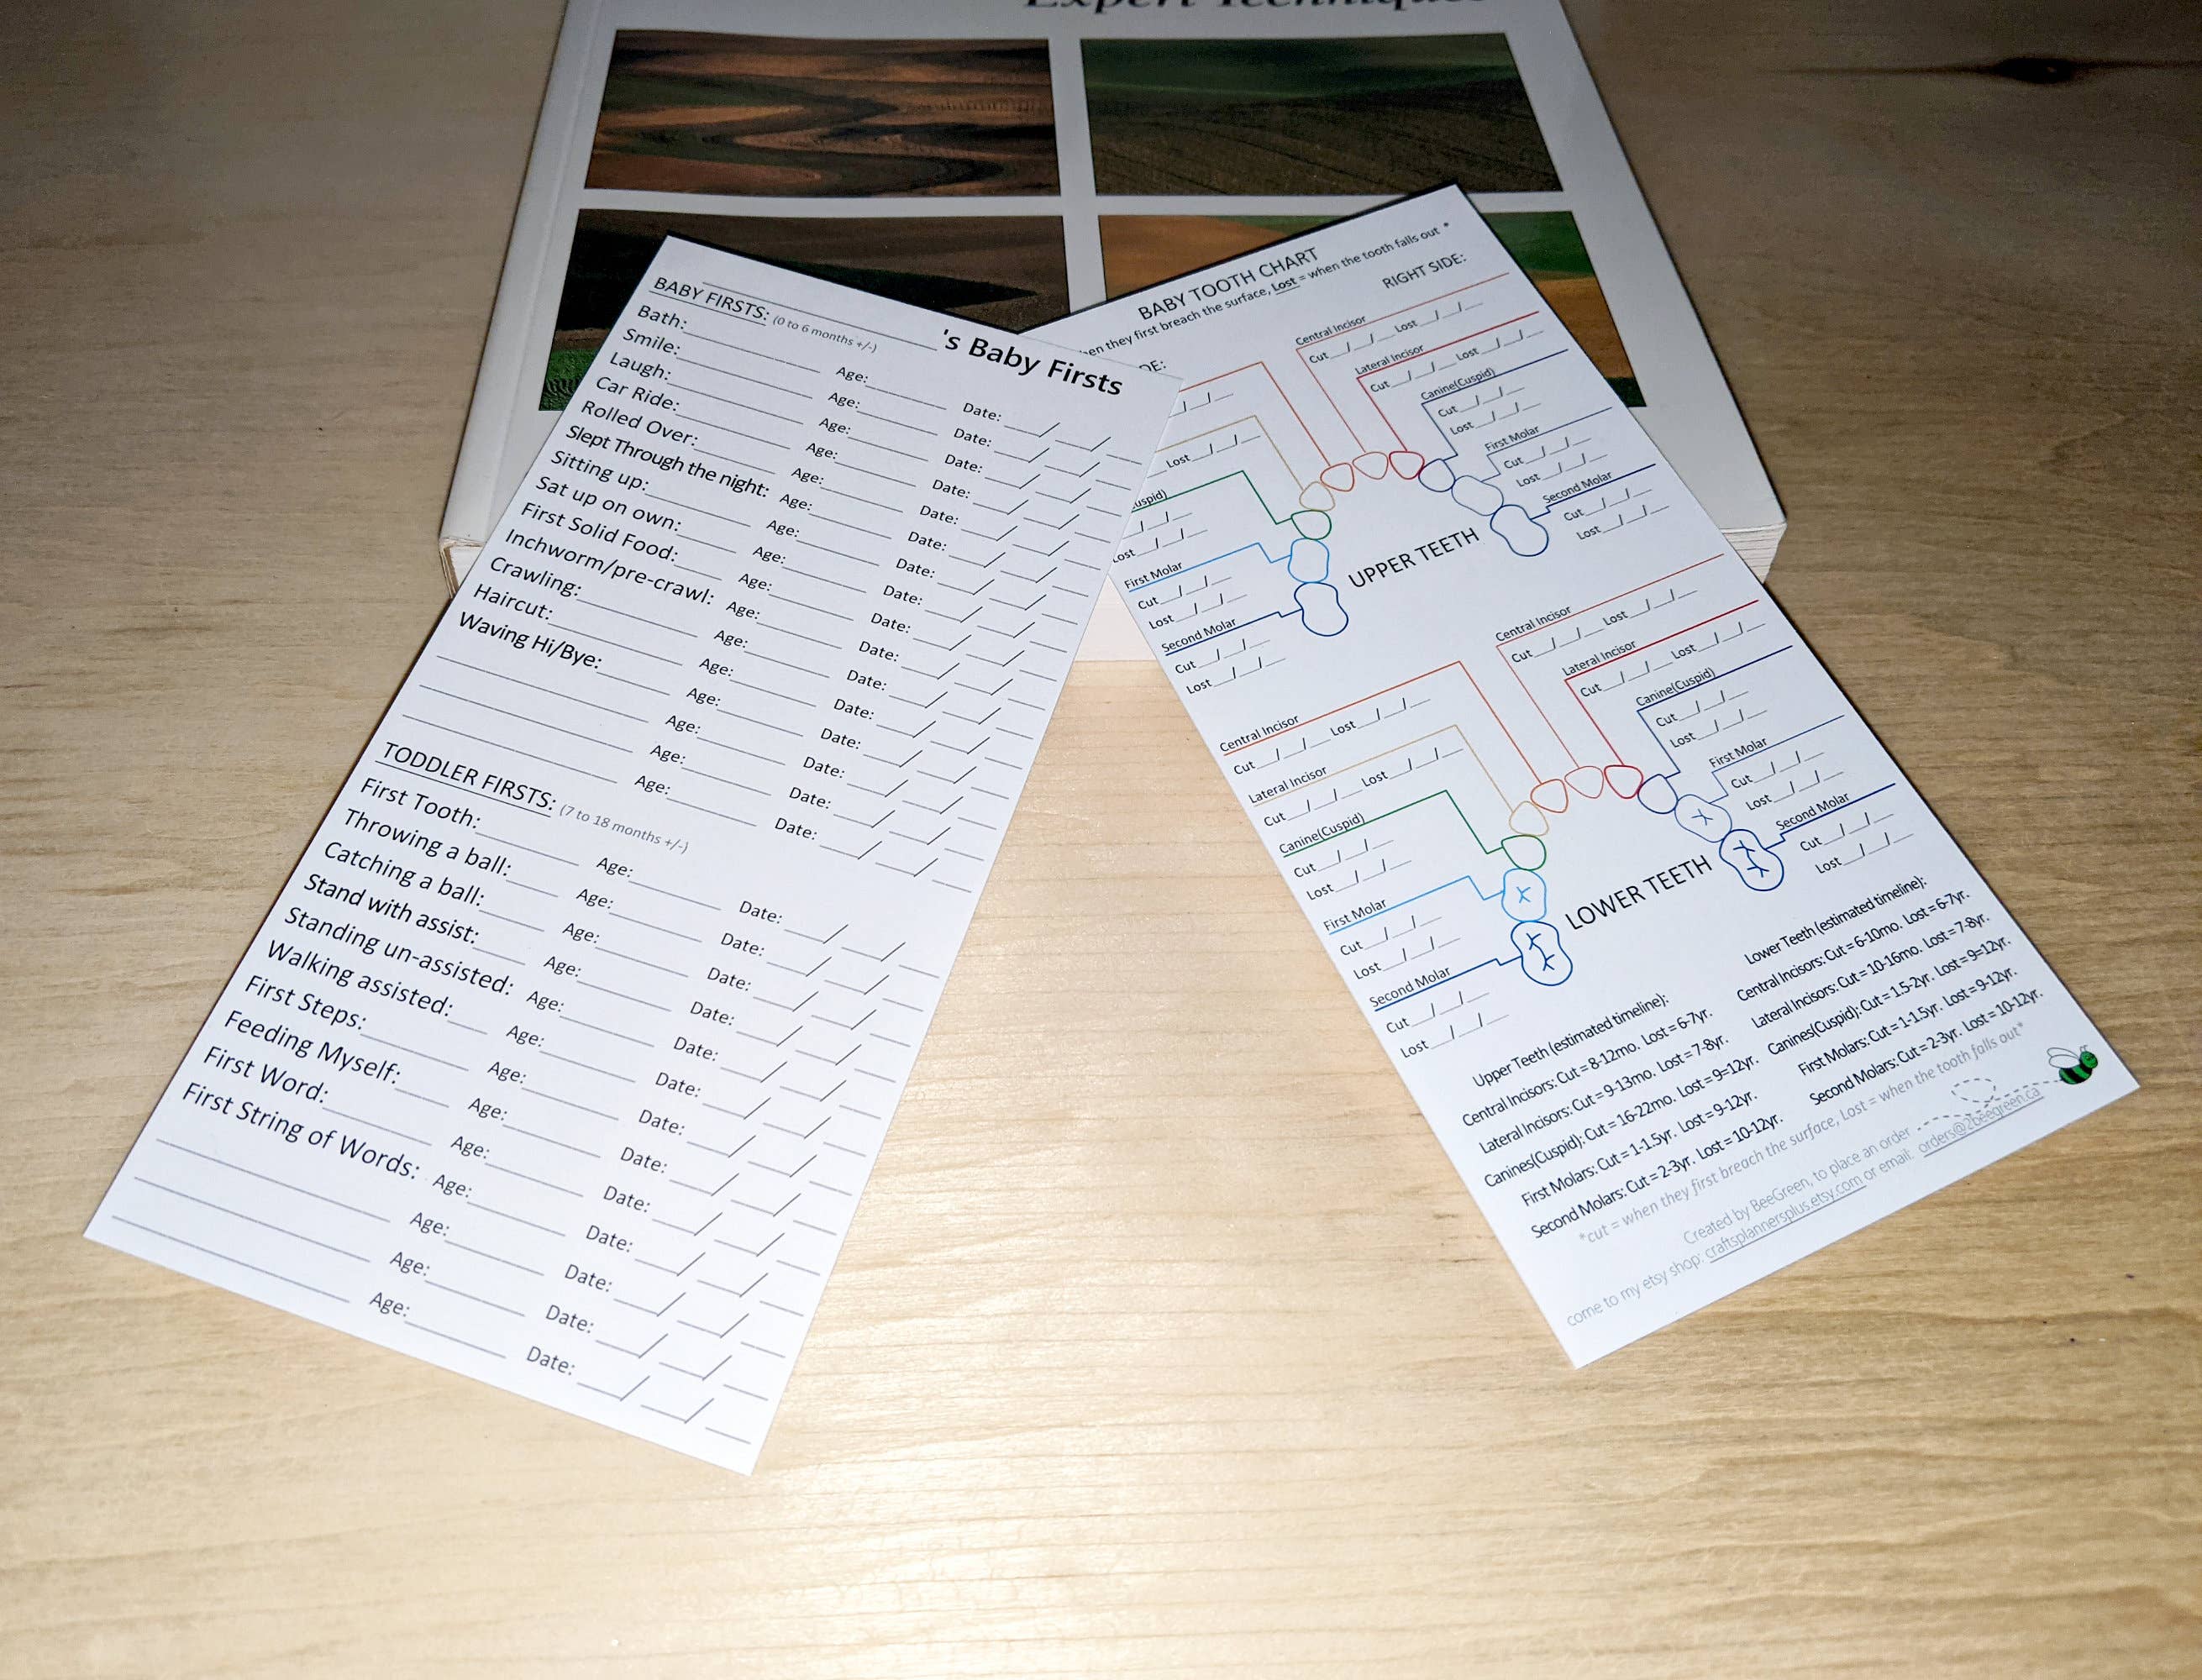 Expert Techniques
's Baby Firsts
BABY FIRSTS: (0 to 6 months +/-)
Bath: Age: Date: / /
Smile: Age: Date: / /
Laugh: Age: Date: / /
Car Ride: Age: Date: / /
Rolled Over: Age: Date: / /
Slept Through the night: Age: Date: / /
Sitting up: Age: Date: / /
Sat up on own: Age: Date: / /
First Solid Food: Age: Date: / /
Inchworm/pre-crawl: Age: Date: / /
Crawling: Age: Date: / /
Haircut: Age: Date: / /
Waving Hi/Bye: Age: Date: / /
Age: Date: / /
Age: Date: / /
Age: Date: / /
TODDLER FIRSTS: (7 to 18 months +/-)
First Tooth: Age: Date: / /
Throwing a ball: Age: Date: / /
Catching a ball: Age: Date: / /
Stand with assist: Age: Date: / /
Standing un-assisted: Age: Date: / /
Walking assisted: Age: Date: / /
First Steps: Age: Date: / /
Feeding Myself: Age: Date: / /
First Word: Age: Date: / /
First String of Words: Age: Date: / /
Age: Date: / /
Age: Date: / /
Age: Date: / /
BABY TOOTH CHART
they first breach the surface, Lost = when the tooth falls out *
RIGHT SIDE:
Central Incisor
Cut / / Lost / /
Lateral Incisor
Cut / / Lost / /
Canine(Cuspid)
Cut / /
Lost / /
First Molar
Cut / /
Lost / /
Second Molar
Cut / /
Lost / /
Lost / /
First Molar
Cut / /
Lost / /
Second Molar
Cut / /
Lost / /
UPPER TEETH
Central Incisor
Cut / / Lost / /
Lateral Incisor
Cut / / Lost / /
Canine(Cuspid)
Cut / /
Lost / /
First Molar
Cut / /
Lost / /
Second Molar
Cut / /
Lost / /
Central Incisor
Cut / / Lost / /
Lateral Incisor
Cut / / Lost / /
Canine(Cuspid)
Cut / /
Lost / /
First Molar
Cut / /
Lost / /
Second Molar
Cut / /
Lost / /
LOWER TEETH
Upper Teeth (estimated timeline):
Central Incisors: Cut = 8-12mo. Lost = 6-7yr.
Lateral Incisors: Cut = 9-13mo. Lost = 7-8yr.
Canines(Cuspid): Cut = 16-22mo. Lost = 9=12yr.
First Molars: Cut = 1-1.5yr. Lost = 9-12yr.
Second Molars: Cut = 2-3yr. Lost = 10-12yr.
Lower Teeth (estimated timeline):
Central Incisors: Cut = 6-10mo. Lost = 6-7yr.
Lateral Incisors: Cut = 10-16mo. Lost = 7-8yr.
Canines(Cuspid): Cut = 1.5-2yr. Lost = 9=12yr.
First Molars: Cut = 1-1.5yr. Lost = 9-12yr.
Second Molars: Cut = 2-3yr. Lost = 10-12yr.
*cut = when they first breach the surface, Lost = when the tooth falls out*
Created by BeeGreen, to place an order
come to my etsy shop: craftsplannersplus.etsy.com or email: orders@2beegreen.ca